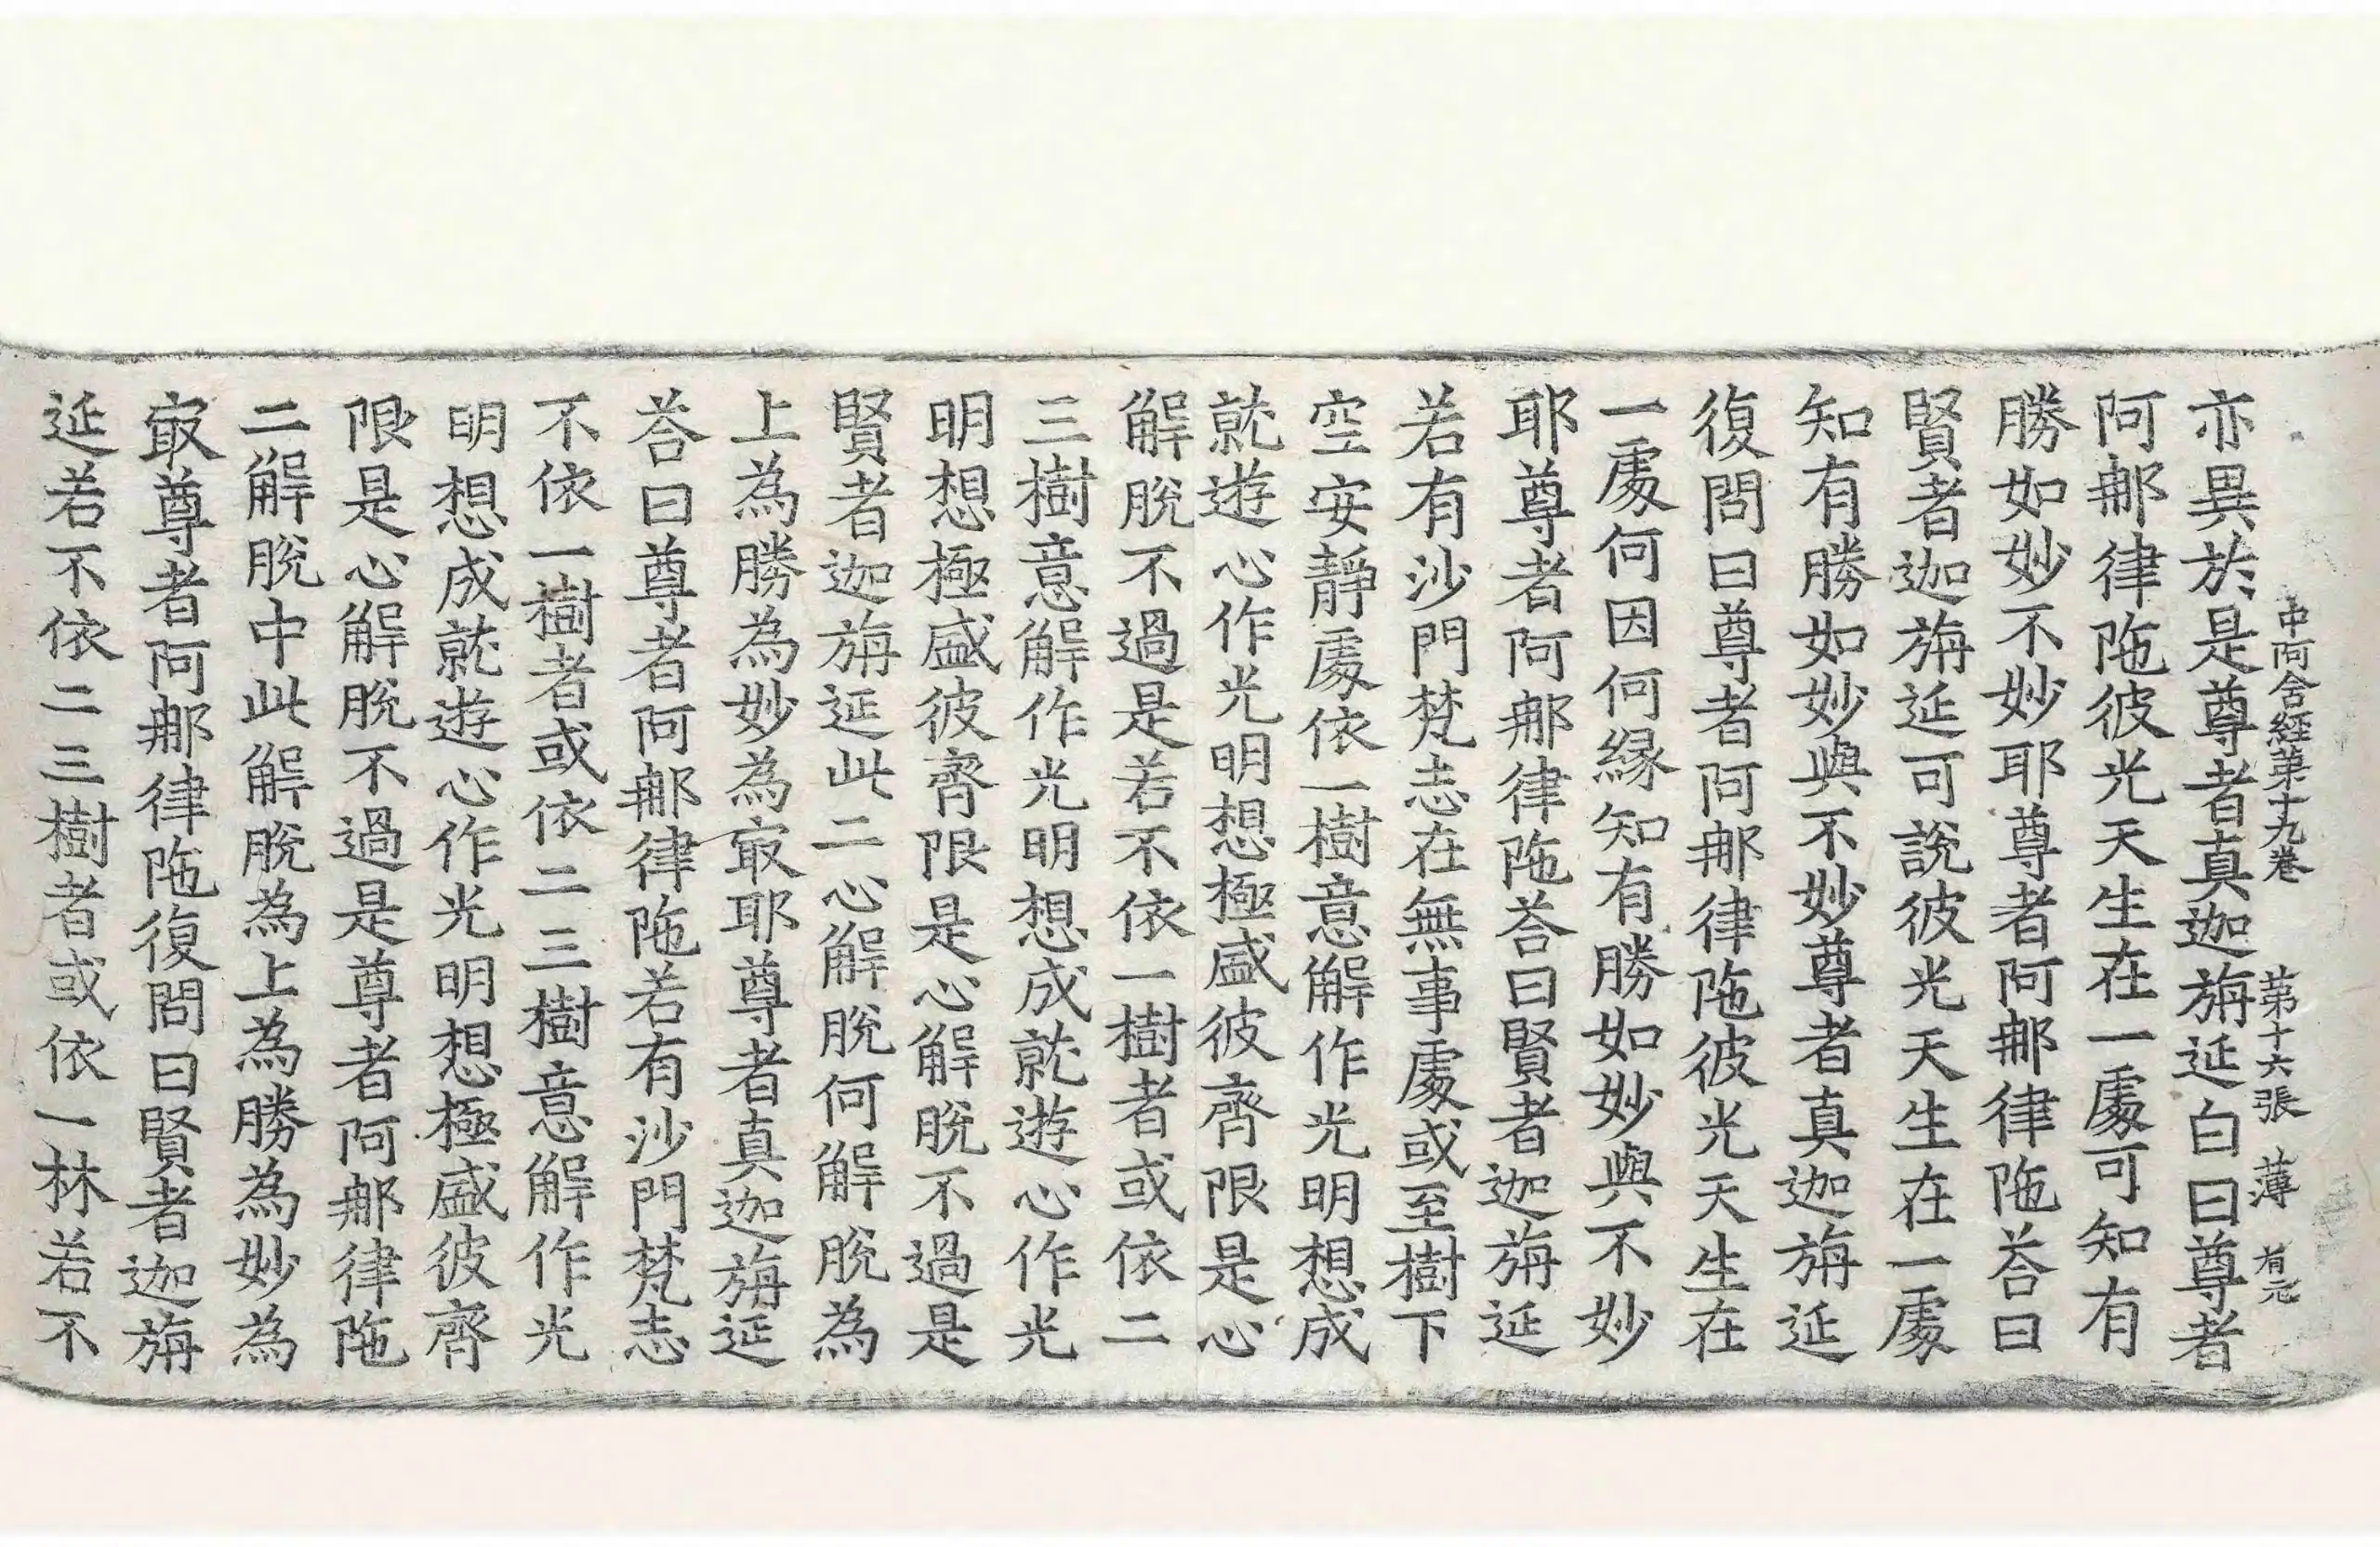 中阿含經第十九卷 第十六張 薄 有元
亦異於是尊者真迦旃延白曰尊者
阿那律陁彼光天生在一處可知有
勝如妙不妙耶尊者阿那律陁荅曰
賢者迦旃延可說彼光天生在一處
知有勝如妙與不妙尊者真迦旃延
復問曰尊者阿那律陁彼光天生在
一處何因何緣知有勝如妙與不妙
耶尊者阿那律陁荅曰賢者迦旃延
若有沙門梵志在無事處或至樹下
空安靜處依一樹意解作光明想成
就遊心作光明想極盛彼齊限是心
解脫不過是若不依一樹者或依二
三樹意解作光明想成就遊心作光
明想極盛彼齊限是心解脫不過是
賢者迦旃延此二心解脫何解脫為
上為勝為妙為㝡耶尊者真迦旃延
荅曰尊者阿那律陁若有沙門梵志
不依一樹者或依二三樹意解作光
明想成就遊心作光明想極盛彼齊
限是心解脫不過是尊者阿那律陁
二解脫中此解脫為上為勝為妙為
㝡尊者阿那律陁復問曰賢者迦旃
延若不依二三樹者或依一林若不